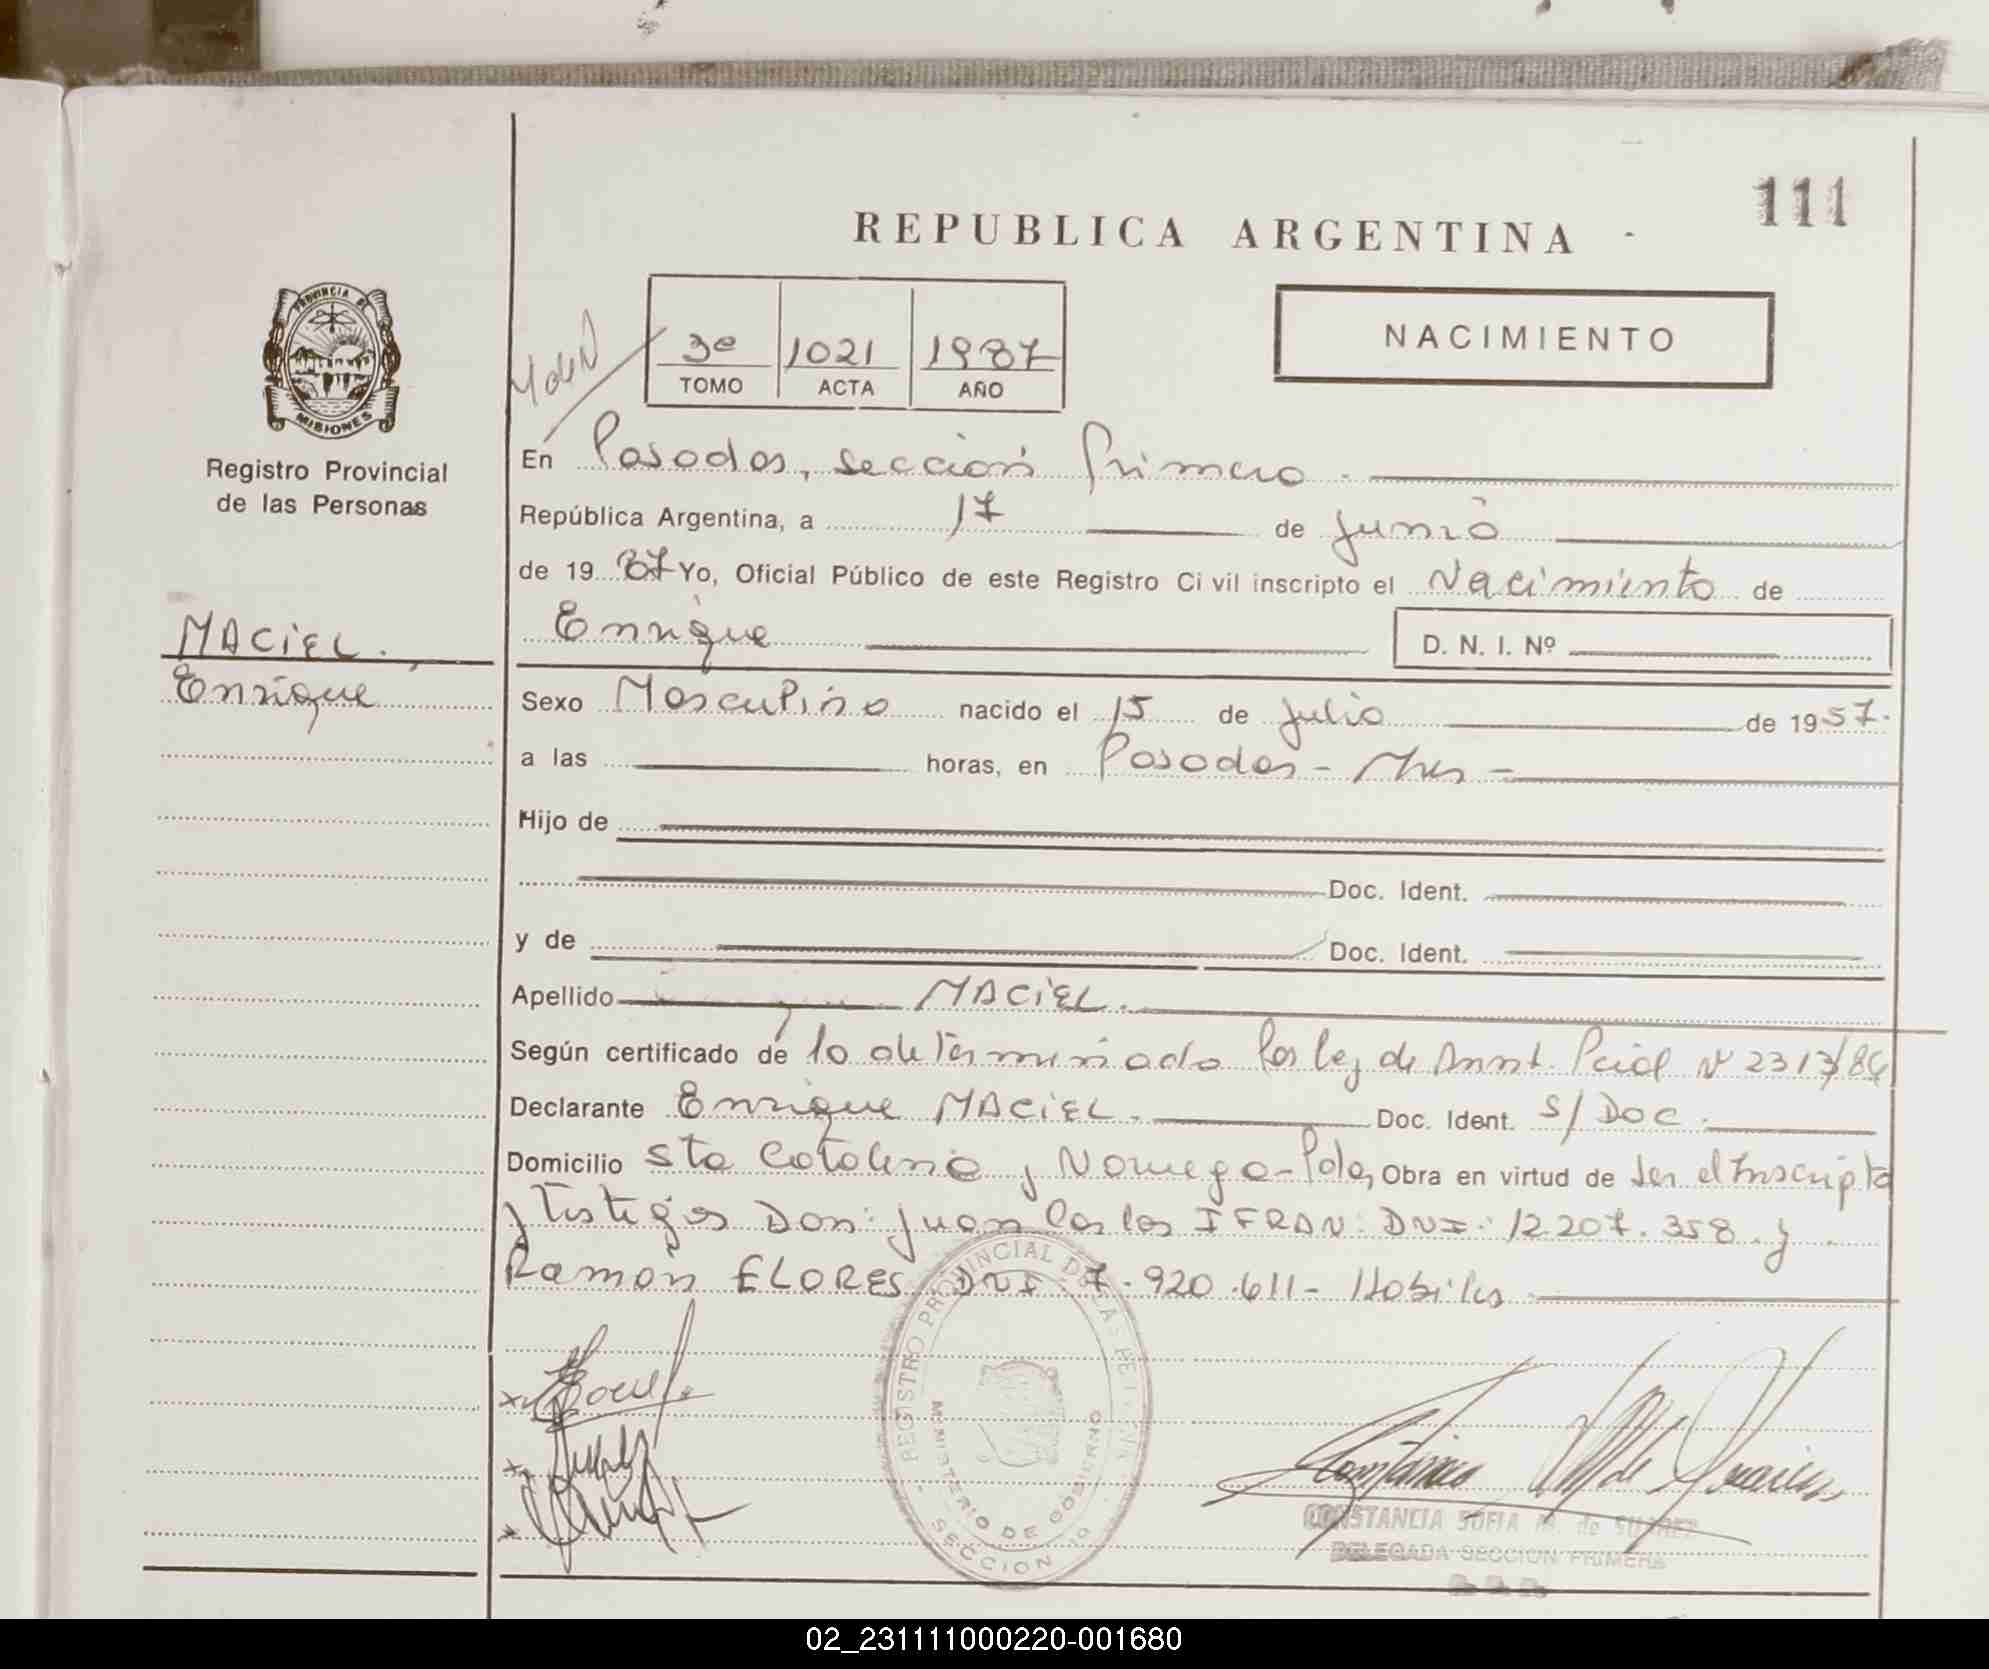 111
REPUBLICA ARGENTINA
PROVINCIA DE
MISIONES
Registro Provincial
de las Personas
3º 1021 1987
TOMO ACTA AÑO
NACIMIENTO
En Posadas, sección Primera.
República Argentina, a 17 de Junio
de 19 87 Yo, Oficial Público de este Registro Civil inscripto el Nacimiento de
MACIEL.
Enrique
Enrique D. N. I. Nº
Sexo Masculino nacido el 15 de Julio de 1957.
a las horas, en Posadas - Mnes -
Hijo de
Doc. Ident.
y de Doc. Ident.
Apellido MACIEL.
Según certificado de lo determinado por ley de Amnt. Pcial Nº 2313/86
Declarante Enrique MACIEL. Doc. Ident. S/Doc.
Domicilio Sta Catalina y Noruega - Pdas, Obra en virtud de ser el Inscripto
y testigos Don: Juan Carlos IFRAN: DNI: 12.207.358. y
Ramón FLORES DNI 7.920.611 - Hábiles
REGISTRO PROVINCIAL DE LAS PERSONAS
MINISTERIO DE GOBIERNO
SECCION 1a
CONSTANCIA SOFIA M. de SUAREZ
DELEGADA SECCION PRIMERA
02_231111000220-001680